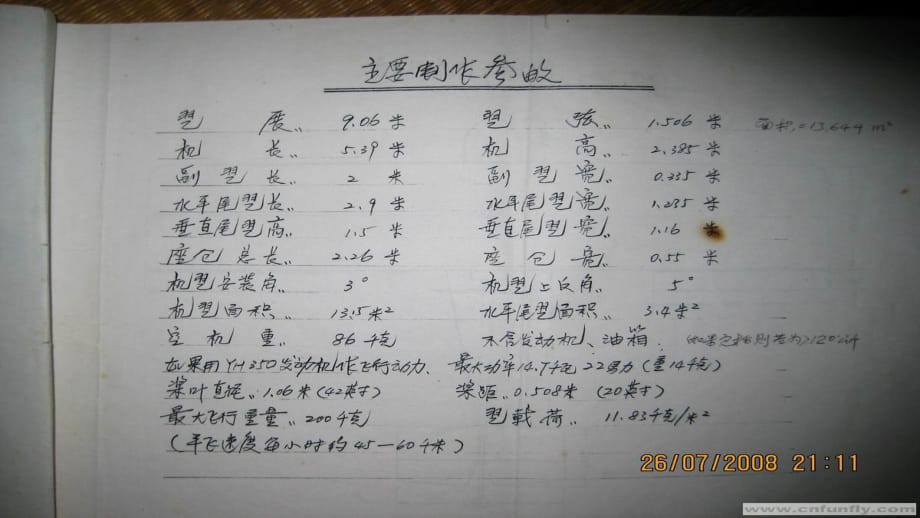 主要制作参数
翼 展: 9.06 米 翼 弦: 1.506 米 面积:=13.644 m²
机 长: 5.39 米 机 高: 2.385 米
副 翼 长: 2 米 副 翼 宽: 0.335 米
水平尾翼长: 2.9 米 水平尾翼宽: 1.235 米
垂直尾翼高: 1.5 米 垂直尾翼宽: 1.16 米
座仓总长: 2.26 米 座仓宽: 0.55 米
机翼安装角: 3° 机翼上反角: 5°
机翼面积: 13.5米² 水平尾翼面积: 3.4米²
空机重: 86千克 不含发动机、油箱.
如果用YH350发动机作飞行动力、最大功率14.7千瓦 22马力(重14千克)
桨叶直径: 1.06米(42英寸) 桨距: 0.508米 (20英寸)
最大飞行重量: 200千克 翼载荷: 11.83千克/米²
(平飞速度每小时约45—60千米)
26/07/2008 21:11
www.cnfunfly.com